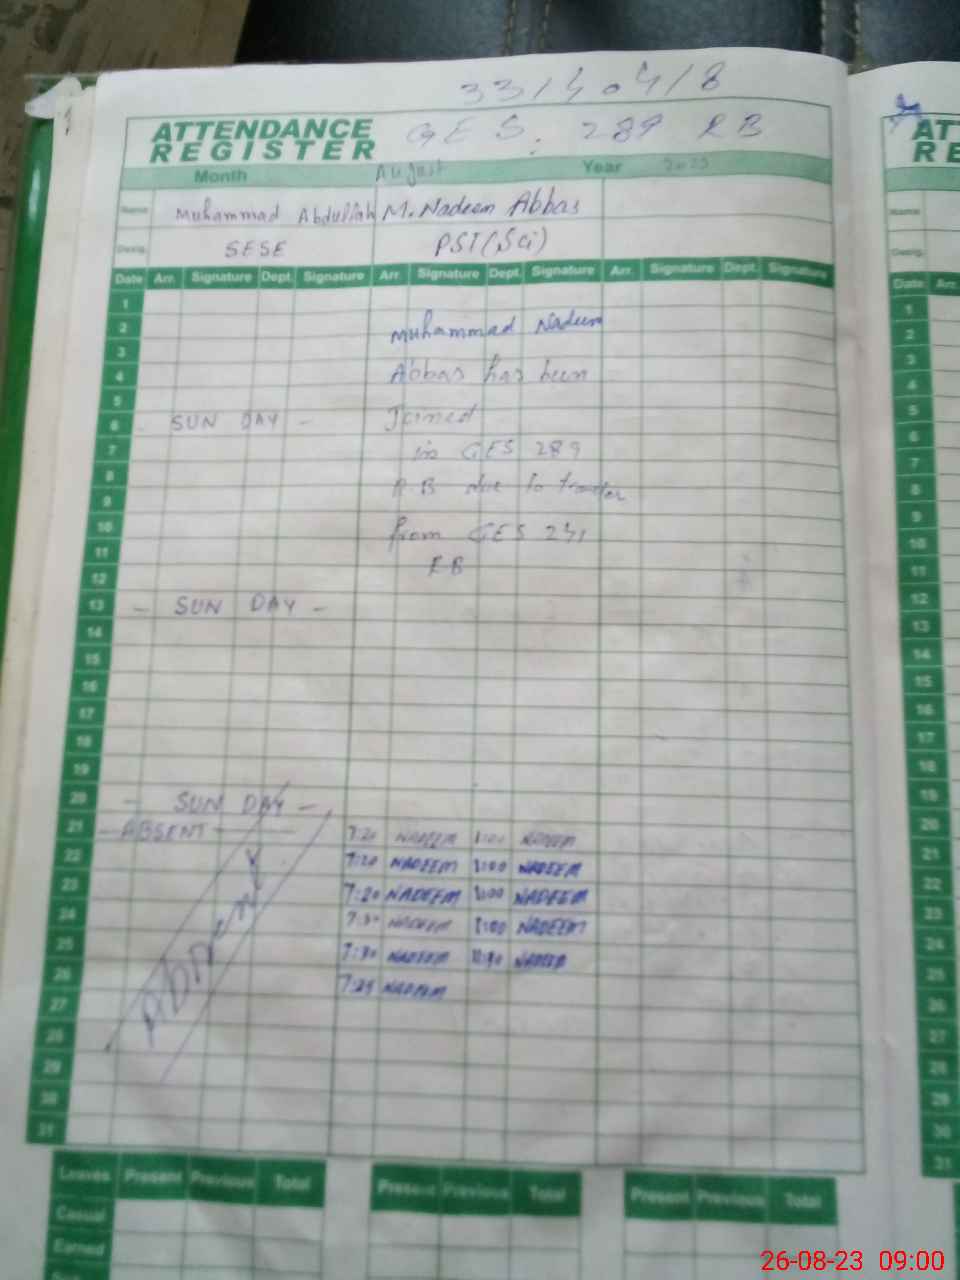 33140418
ATTENDANCE REGISTER GES. 289 RB
Month August Year 2023
Name Muhammad Abdullah M. Nadeem Abbas
Desig. SESE PST(Sci)
Date Arr. Signature Dept. Signature Arr. Signature Dept. Signature Arr. Signature Dept. Signature
1
2 Muhammad Nadeem
3
4 Abbas has been
5
6 - SUN DAY - Joined
7 in GES 289
8
9 R.B due to transfer
10 from GES 241
11 RB
12
13 - SUN DAY -
14
15
16
17
18
19
20 - SUN DAY -
21 - ABSENT - 7:20 NADEEM 1:00 NADEEM
22 7:20 NADEEM 1:00 NADEEM
23 7:20 NADEEM 1:00 NADEEM
24 NADEEM 1:00 NADEEM
25 7:30 NADEEM NADEEM
26 7:25 NADEEM
27 Absent
28
29
30
31
Leaves Present Previous Total Present Previous Total Present Previous Total
Casual
Earned
AT
RE
Name
Desig.
Date Arr.
1
2
3
4
5
6
7
8
9
10
11
12
13
14
15
16
17
18
19
20
21
22
23
24
25
26
27
28
29
30
31
26-08-23 09:00